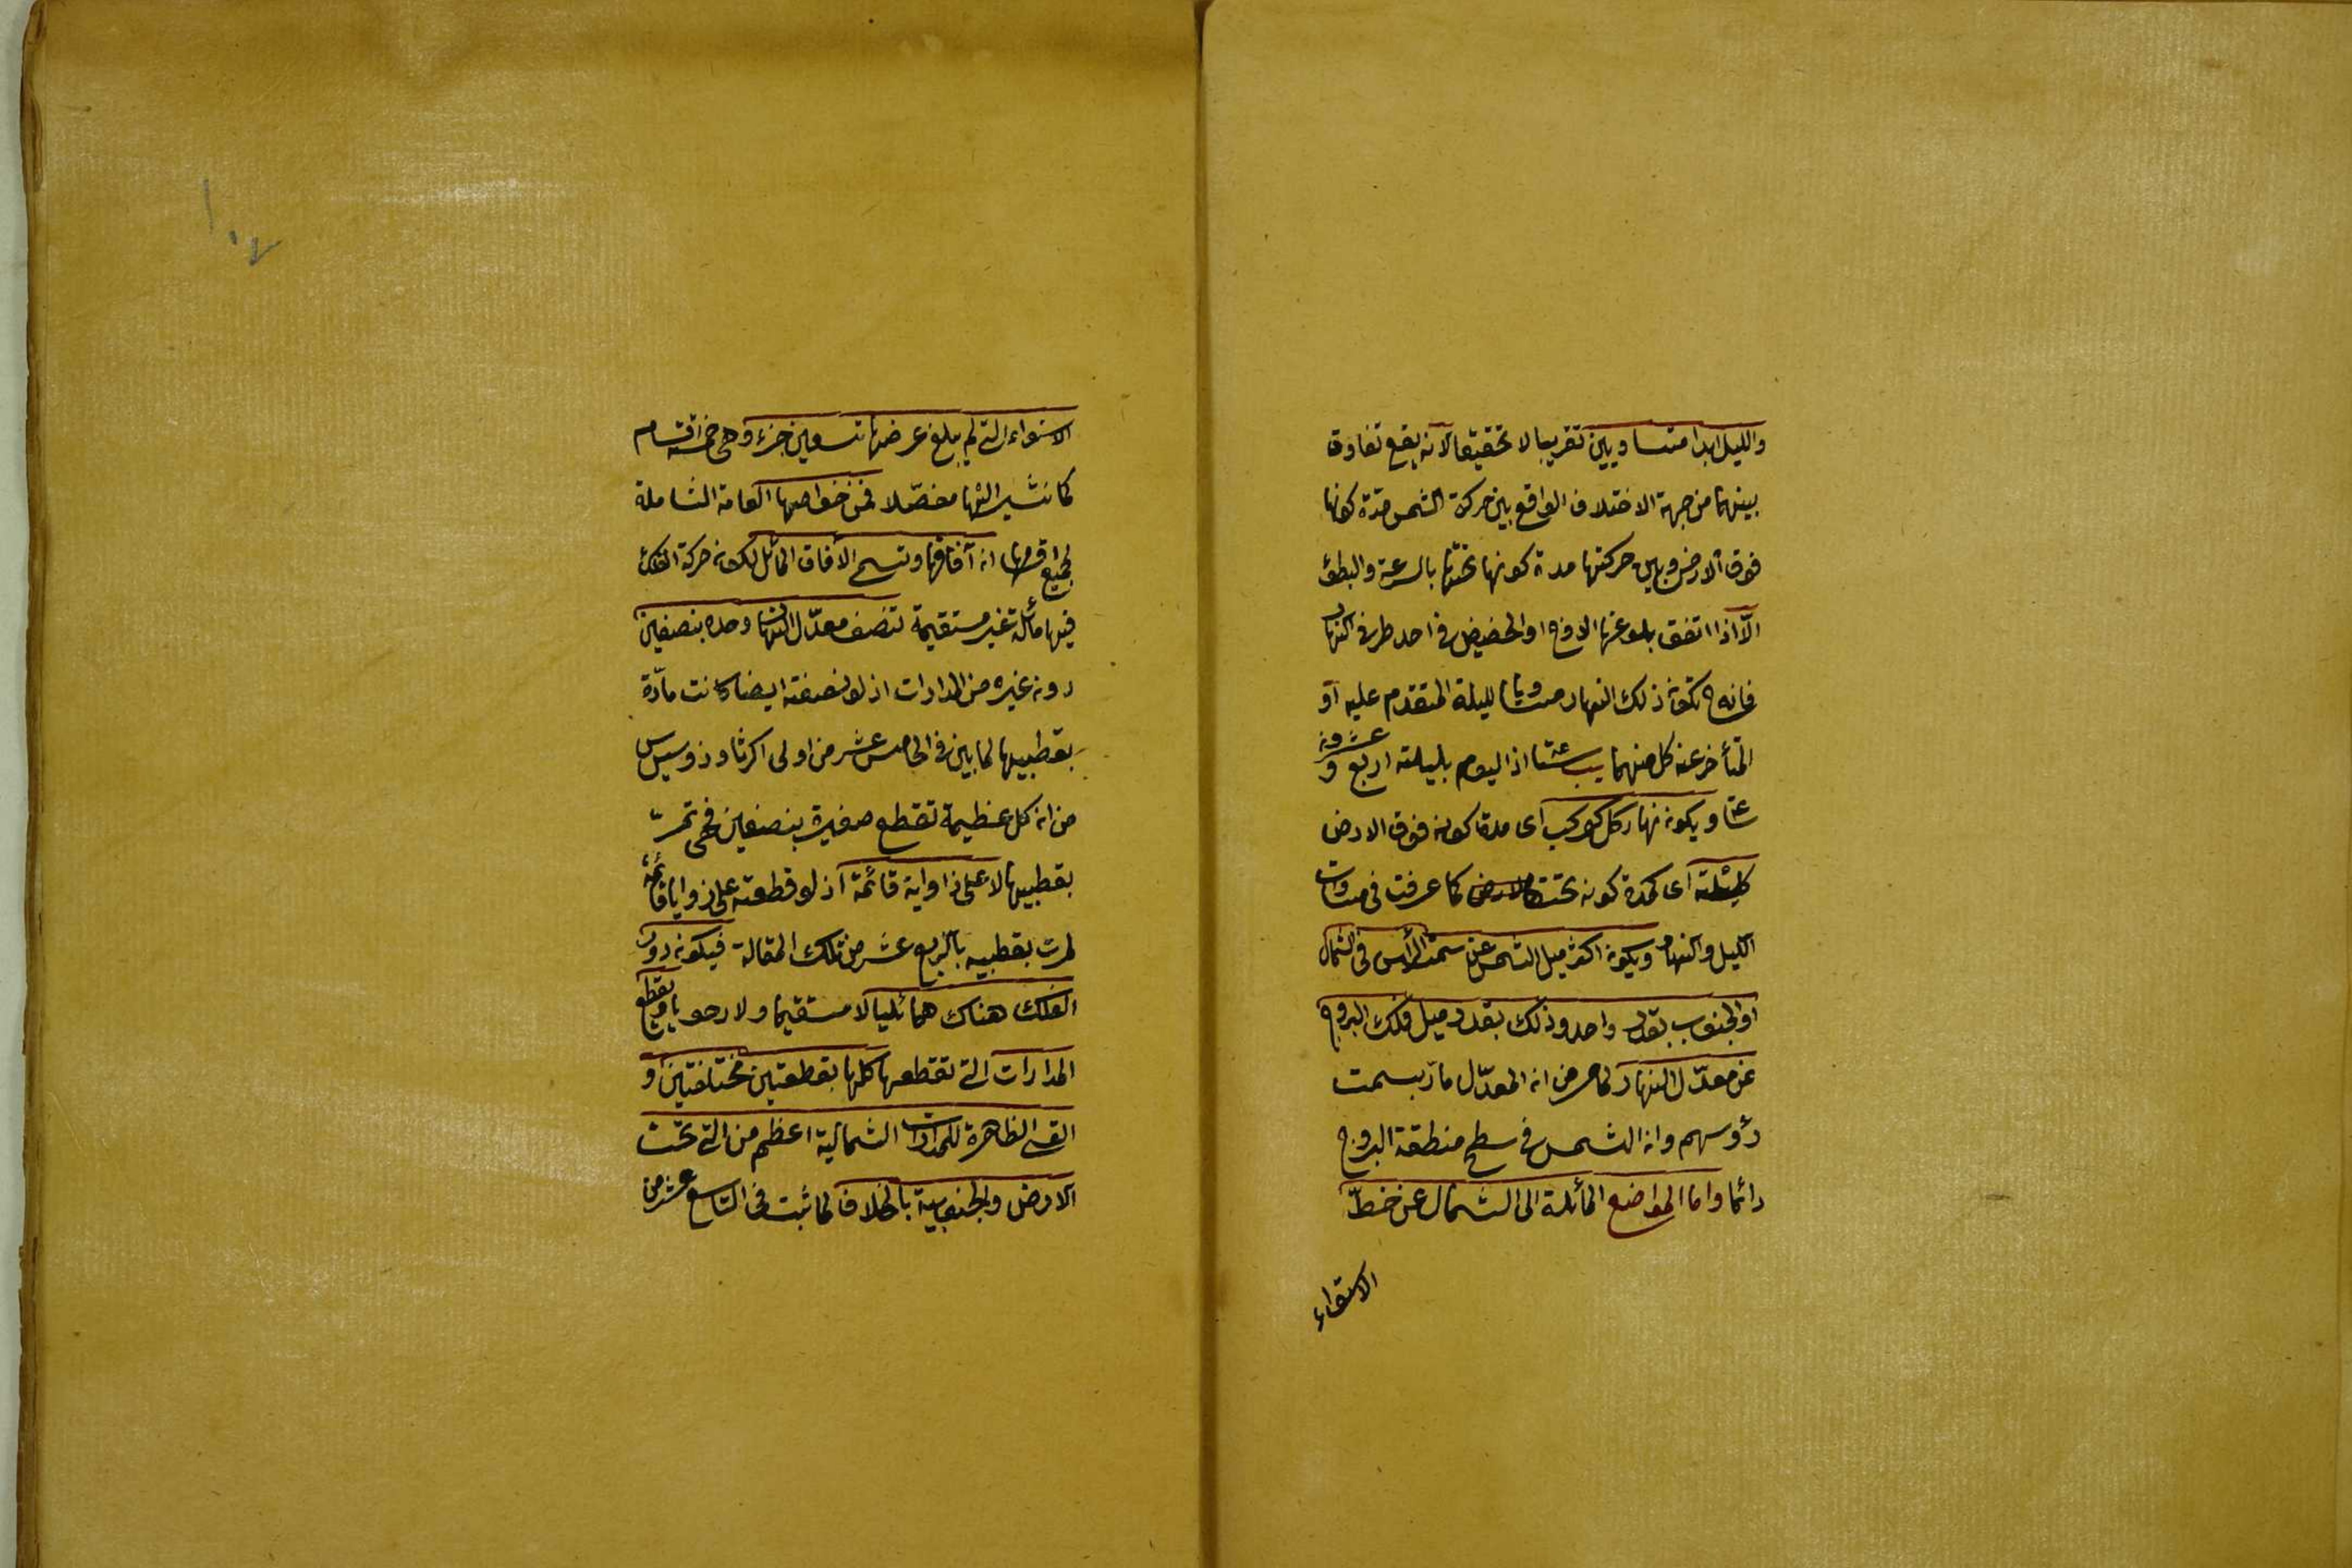 والليل ابدا متساويين تقريبا لا تحقيقا لانه يقع تفاوت
بينهما من جهة الاختلاف الواقع بين حركة الشمس مدة كونها
فوق الارض وبين حركتها مدة كونها تحتها بالسرعة والبطؤ
الّا اذا اتفق بلوغها الاوج او الحضيض في احد طرفي النهار
فانه ح تكون ذلك النهار مساويا لليلة المتقدم عليه او
المتأخر عنه كل منهما يب ساعة اذ اليوم بليلته اربع وعشرون
ساعة ويكون نهار كل كوكب اى مدة كونه فوق الارض
كليلته اى كمدة كونه تحت الارض كما عرفت في مساوات
الليل والنهار ويكون اكثر ميل الشمس عن سمت الرأس في الشمال
او الجنوب بقدر واحد وذلك بقدر ميل فلك البروج
عن معدّل النهار لما مر من ان المعدّل مارّ بسمت
رؤسهم وان الشمس في سطح منطقة البروج
دائما واما المواضع المائلة الى الشمال عن خطّ
الاستواء
الاستواء التي لم يبلغ عرضها تسعين جزء وهى خمسة اقسام
كما نشير اليها مفصّلا فمن خواصها العامة الشاملة
لجميع اقسامها ان آفاقها وتسمى الآفاق المائل لكون حركة الفلك
فيها مائلة غير مستقيمة تنصف معدّل النهار وحده بنصفين
دون غيره من المدارات اذ لو نصفته ايضا كانت مارّة
بقطبيها لما بين في الخامس عشر من اولى اكر ثاوذوسيس
من ان كل عظيمة تقطع صغيرة بنصفين فهى تمرّ
بقطبيها لا على زاواية قائمة اذ لو قطعته على زوايا قائمة
لمرت بقطبيه بالرابع عشر من تلك المقالة فيكون دور
الفلك هناك حمائليا لا مستقيما ولا رحويا ويقطع
المدارات التي تقطعها كلها بقطعتين مختلفتين و
القسى الظاهرة للمدارات الشمالية اعظم من التي تحت
الارض والجنوبية بالخلاف لما ثبت في التاسع عشر من